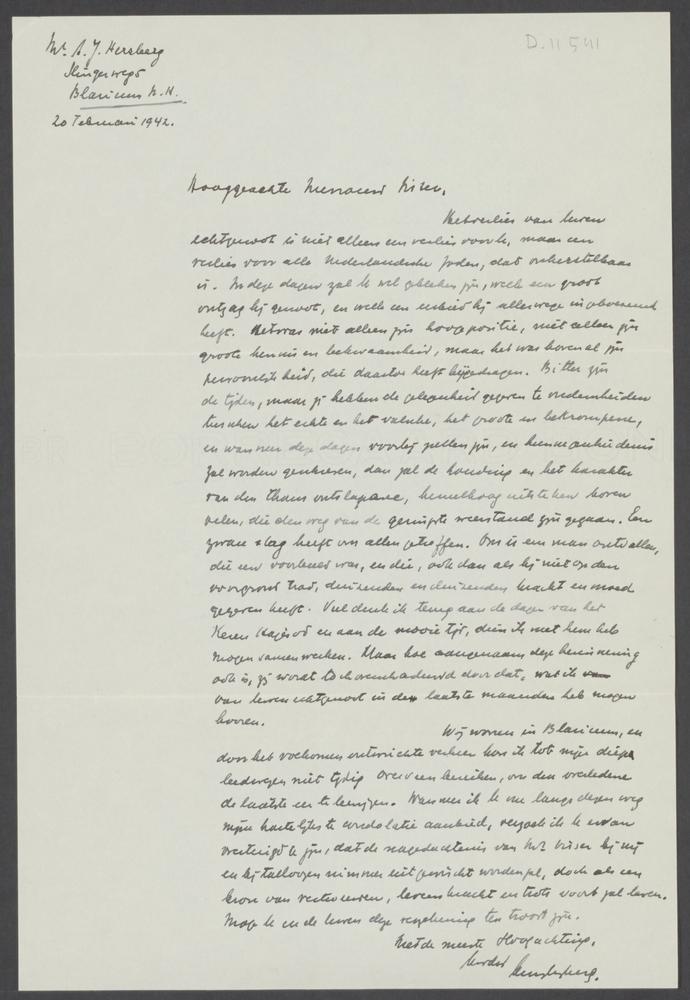 D.11541
Mr. A. J. Herzberg
Slingerweg 5
Blaricum N.H.
20 Februari 1942.
Hooggeachte Mevrouw Visser,
Het verlies van Uwen
echtgenoot is niet alleen een verlies voor U, maar een
verlies voor alle Nederlandsche Joden, dat onherstelbaar
is. In deze dagen zal U wel gebleken zijn, welk een groot
ontzag hij genoot, en welk een eerbied hij allerwege ingeboezemd
heeft. Het was niet alleen zijn hooge positie, niet alleen zijn
groote kennis en bekwaamheid, maar het was bovenal zijn
persoonlijkheid, die daartoe heeft bijgedragen. Bitter zijn
de tijden, maar zij hebben de gelegenheid gegeven te onderscheiden
tusschen het echte en het valsche, het groote en bekrompene,
en wanneer deze dagen voorbij zullen zijn, en hunne geschiedenis
zal worden geschreven, dan zal de houding en het karakter
van den thans ontslapene, hemelhoog uitsteken boven
velen, die den weg van de geringste weerstand zijn gegaan. Een
zware slag heeft ons allen getroffen. Ons is een man ontvallen,
die een voorbeeld was, en die, ook dan als hij niet op den
voorgrond trad, duizenden en duizenden kracht en moed
gegeven heeft. Veel denk ik terug aan de dagen van het
Keren Hajesod en aan de mooie tijd, dien ik met hem heb
mogen samenwerken. Maar hoe aangenaam deze herinnering
ook is, zij wordt toch overschaduwd door dat, wat ik
van Uwen echtgenoot in de laatste maanden heb mogen
hooren.
Wij wonen in Blaricum, en
door het volkomen ontwrichte verkeer kon ik tot mijn diepe
leedwezen niet tijdig Overveen bereiken, om den overledene
de laatste eer te bewijzen. Wanneer ik U nu langs dezen weg
mijn hartelijkste condolatie aanbied, verzoek ik U ervan
overtuigd te zijn, dat de nagedachtenis van Mr. Visser bij mij
en bij talloozen nimmer uitgewischt worden zal, doch als een
bron van vertrouwen, levenskracht en trots voort zal leven.
Moge U en de Uwen deze verzekering ten troost zijn.
Met de meeste Hoogachting,
Herzberg.